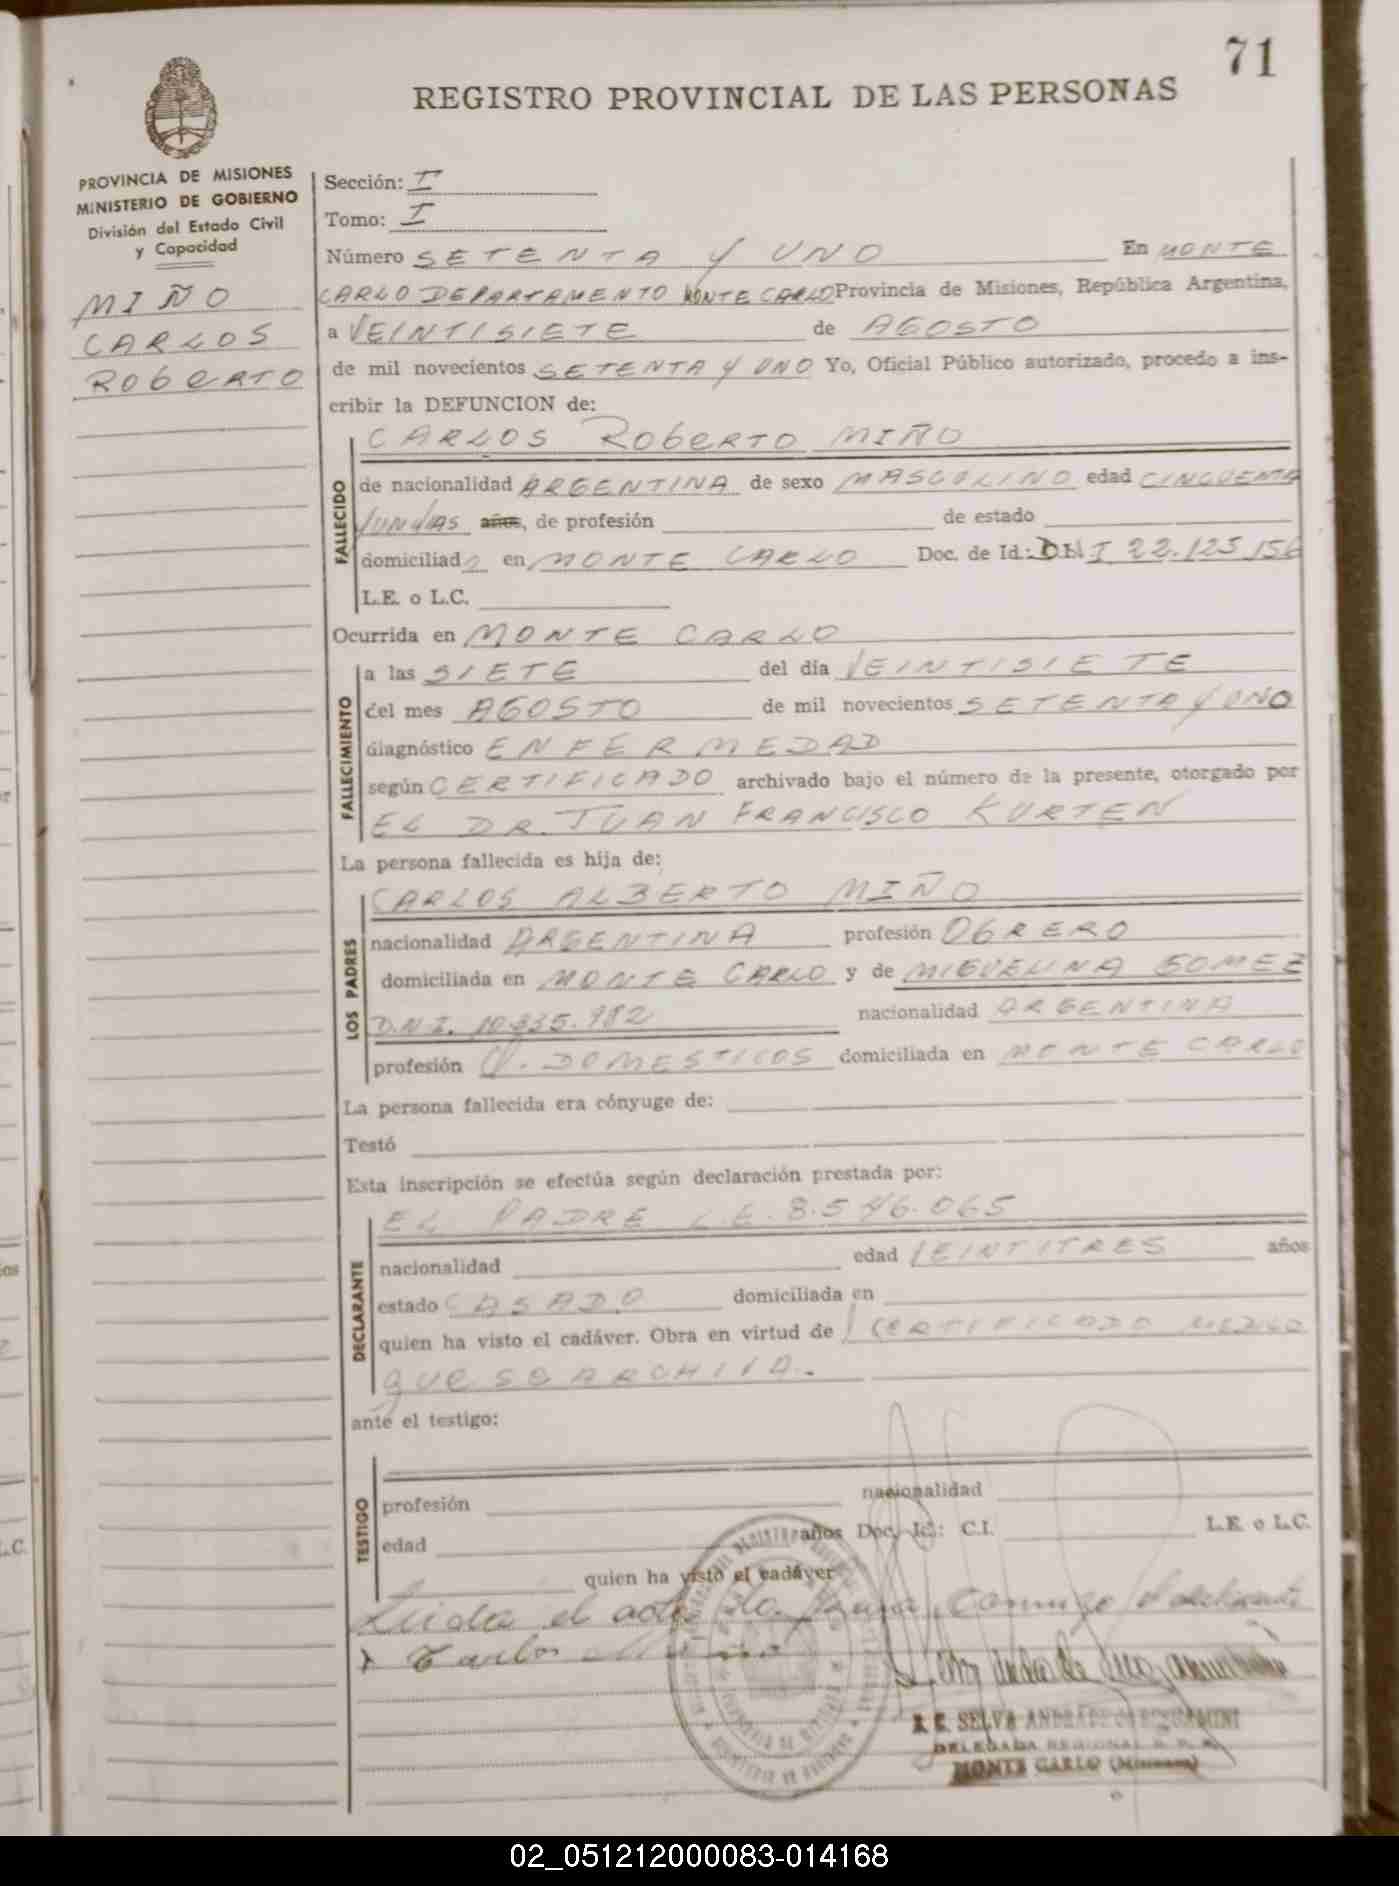 71
REGISTRO PROVINCIAL DE LAS PERSONAS
PROVINCIA DE MISIONES
MINISTERIO DE GOBIERNO
División del Estado Civil
y Capacidad
MIÑO
CARLOS
ROBERTO
Sección: I
Tomo: I
Número SETENTA Y UNO En MONTE
CARLO DEPARTAMENTO MONTE CARLO Provincia de Misiones, República Argentina,
a VEINTISIETE de AGOSTO
de mil novecientos SETENTA Y UNO Yo, Oficial Público autorizado, procedo a ins-
cribir la DEFUNCION de:
CARLOS ROBERTO MIÑO
FALLECIDO
de nacionalidad ARGENTINA de sexo MASCULINO edad CINCUENTA
años, de profesión de estado
domiciliad en MONTE CARLO Doc. de Id.: DNI 22.125.156
L.E. o L.C.
Ocurrida en MONTE CARLO
FALLECIMIENTO
a las SIETE del día VEINTISIETE
del mes AGOSTO de mil novecientos SETENTA Y UNO
diagnóstico ENFERMEDAD
según CERTIFICADO archivado bajo el número de la presente, otorgado por
EL DR. JUAN FRANCISCO KURTEN
La persona fallecida es hija de:
CARLOS ALBERTO MIÑO
LOS PADRES
nacionalidad ARGENTINA profesión OBRERO
domiciliada en MONTE CARLO y de MIGUELINA GOMEZ
D.N.I. nacionalidad ARGENTINA
profesión Q. DOMESTICOS domiciliada en MONTE CARLO
La persona fallecida era cónyuge de:
Testó
Esta inscripción se efectúa según declaración prestada por:
EL PADRE L.E. 8.546.065
DECLARANTE
nacionalidad edad VEINTITRES años
estado CASADO domiciliada en
quien ha visto el cadáver. Obra en virtud de CERTIFICADO MEDICO
QUE SE ARCHIVA.
ante el testigo:
TESTIGO
profesión nacionalidad
edad años Doc. Id.: C.I. L.E. o L.C.
quien ha visto el cadáver
Leida el acta la firma conmigo el declarante
Carlos Miño
SELVA ANDRADE
DELEGADA REGIONAL
MONTE CARLO (Misiones)
02_051212000083-014168